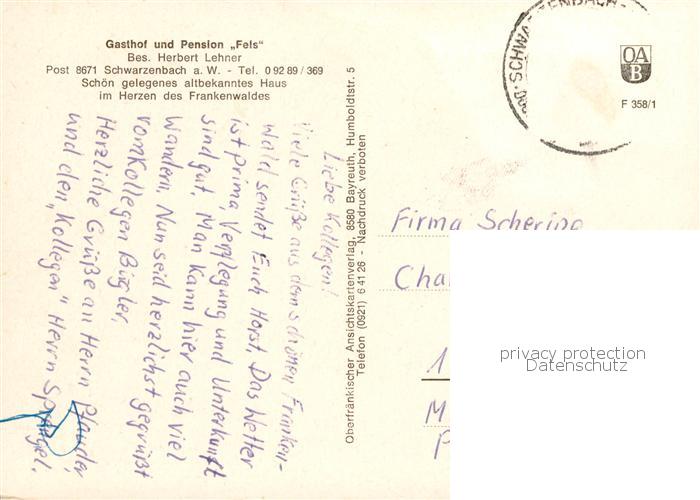 Gasthof und Pension „Fels“
Bes. Herbert Lehner
Post 8671 Schwarzenbach a. W. - Tel. 0 92 89 / 369
Schön gelegenes altbekanntes Haus
im Herzen des Frankenwaldes
Liebe Kollegen!
Viele Grüße aus dem schönen Franken-
wald sendet Euch Horst. Das Wetter
ist prima, Verpflegung und Unterkunft
sind gut. Man kann hier auch viel
wandern. Nun seid herzlichst gegrüßt
vom Kollegen Bügler.
Herzliche Grüße an Herrn Pfauder,
und den „Kollegen" Herrn Sprüngel.
Oberfränkischer Ansichtskartenverlag, 8580 Bayreuth, Humboldtstr. 5
Telefon (0921) 6 41 26 - Nachdruck verboten
OA
B
F 358/1
Firma Schering
Cha
1
M
P
privacy protection
Datenschutz